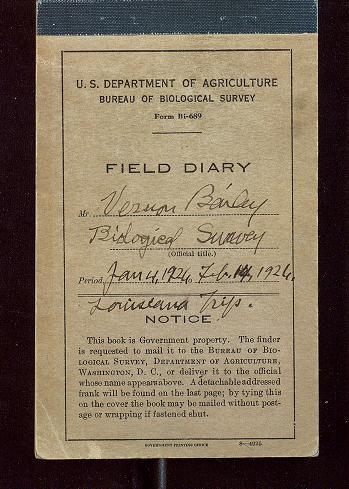 U. S. DEPARTMENT OF AGRICULTURE
BUREAU OF BIOLOGICAL SURVEY
Form Bi-689
FIELD DIARY
Mr. Vernon Bailey
Biological Survey
(Official title.)
Period, Jan 4, 1926, to Feb. 14, 1926.
Louisiana Trip.
NOTICE
This book is Government property. The finder
is requested to mail it to the BUREAU OF BIO-
LOGICAL SURVEY, DEPARTMENT OF AGRICULTURE,
WASHINGTON, D. C., or deliver it to the official
whose name appears above. A detachable addressed
frank will be found on the last page; by tying this
on the cover the book may be mailed without post-
age or wrapping if fastened shut.
GOVERNMENT PRINTING OFFICE